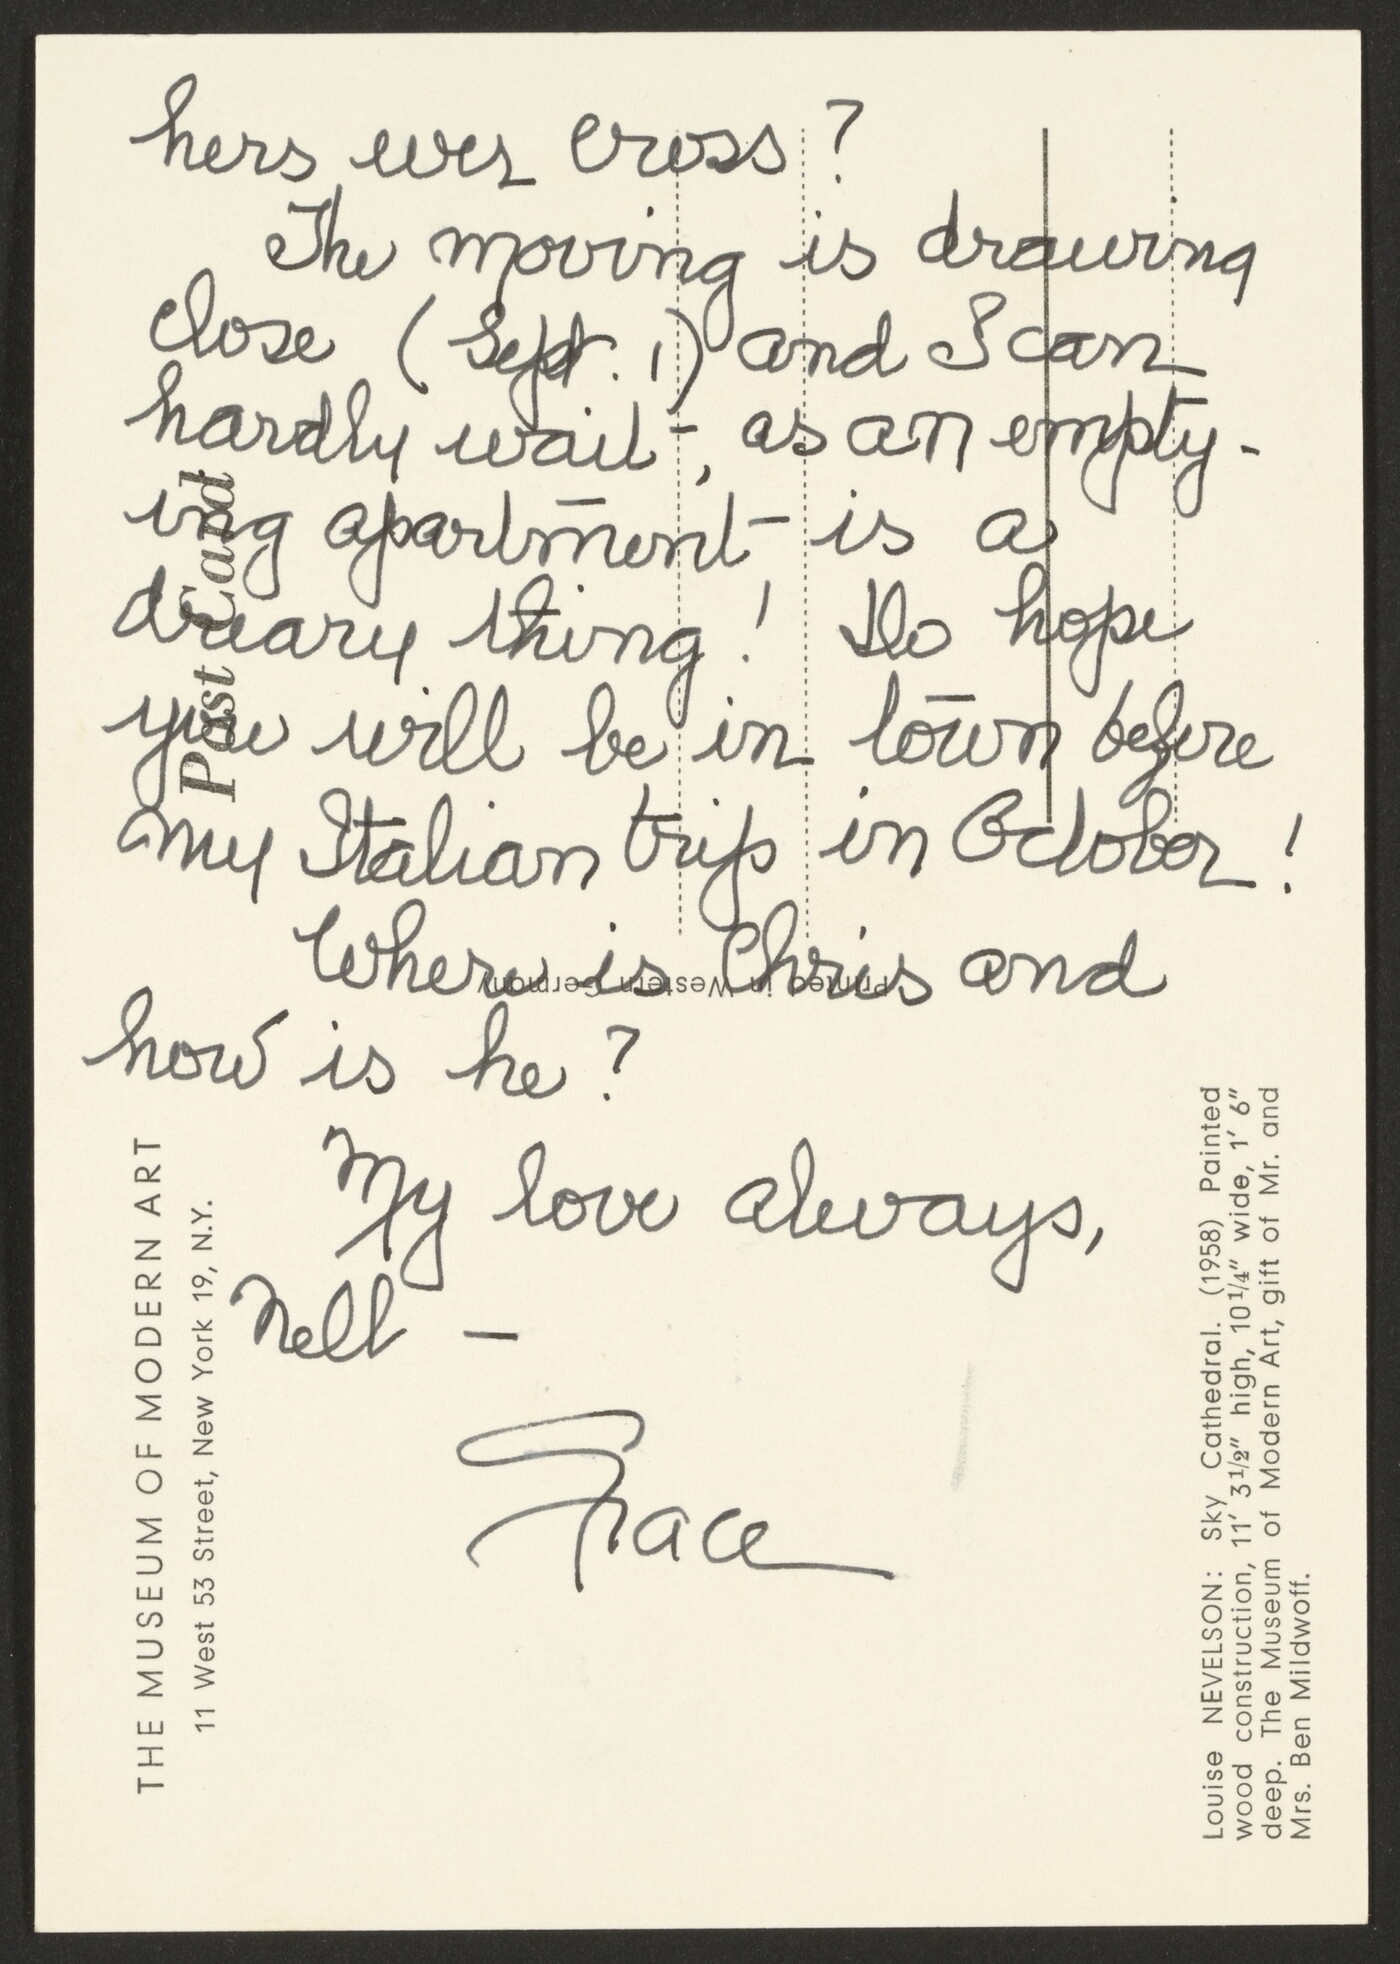 hers ever cross?
The moving is drawing
close (Sept. 1) and I can
hardly wait, as an empty-
ing apartment is a
dreary thing! Do hope
you will be in town before
my Italian trip in October!
Where is Chris and
how is he?
My love always,
Nell —
Grace
Post Card
Printed in Western Germany
THE MUSEUM OF MODERN ART
11 West 53 Street, New York 19, N.Y.
Louise NEVELSON: Sky Cathedral. (1958) Painted
wood construction, 11′ 3½″ high, 10¼″ wide, 1′ 6″
deep. The Museum of Modern Art, gift of Mr. and
Mrs. Ben Mildwoff.